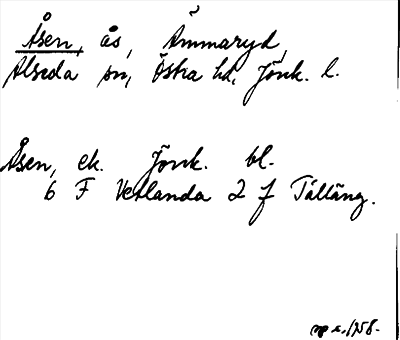 Åsen, ås, Ämmaryd,
Alseda sn, Östra hd, Jönk. l.
Åsen, ek. Jönk. bl.
6 F Vetlanda 2 f Tälläng.
1958.